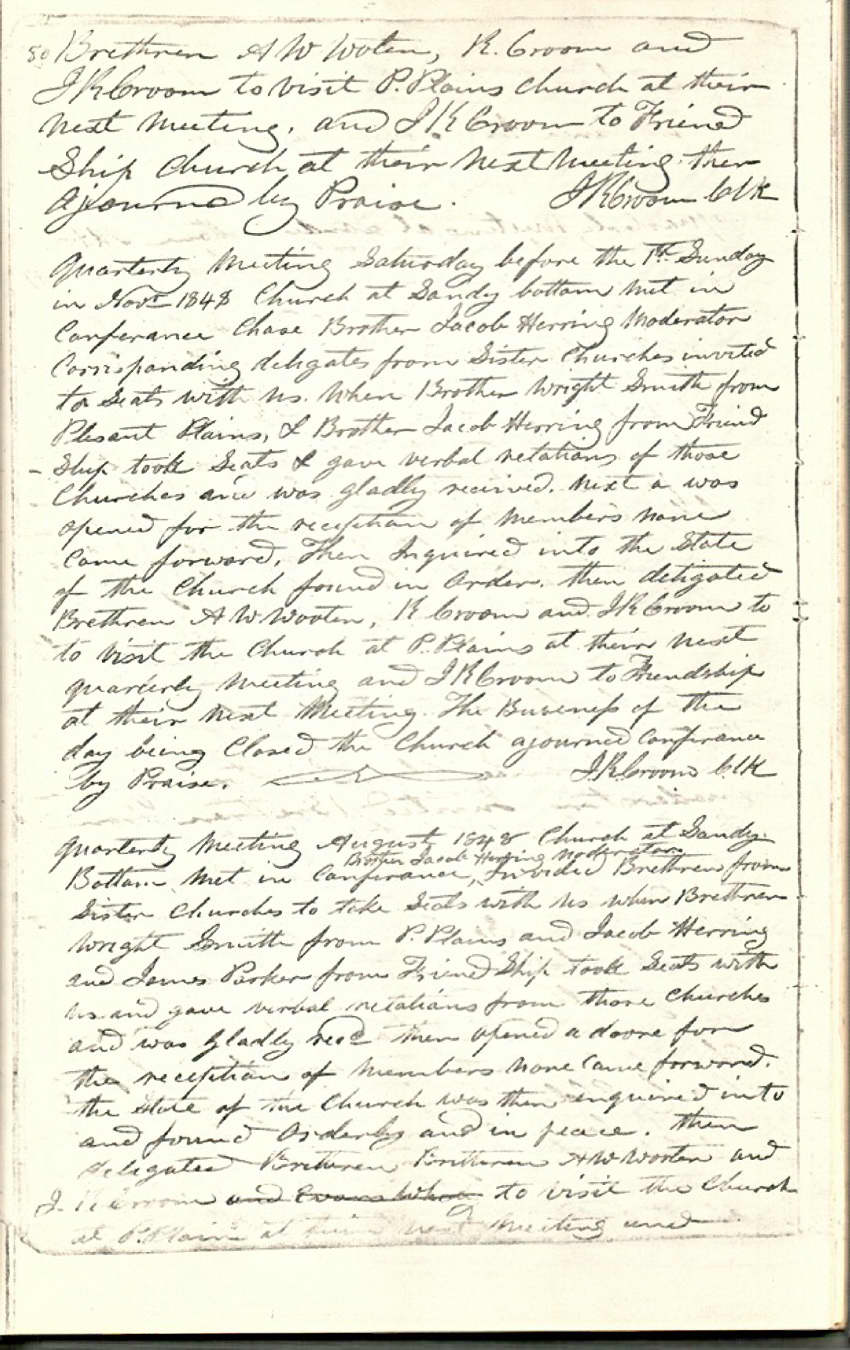 80 Brethren A W Woten, R. Croom and
J R Croom to visit P. Plains church at their
next meeting, and J R Croom to Friend
Ship church at their next meeting then
ajourned by Praise. J R Croom Clk
Quarterly Meeting Saturday before the 1st Sunday
in Novr 1848 Church at Sandy bottom met in
Conferance Chose Brother Jacob Herring Moderator
Corrisponding deligates from Sister Churches invited
to Seats with us. When Brother Wright Smith from
Plesant Plains, & Brother Jacob Herring from Friend
- Ship took Seats & gave verbal relations of those
Churches and was gladly received. next a was
opened for the reception of members none
Came forward. Then Inquired into the State
of the Church found in Order. then deligated
Brethren A W Wooten, R Croom and J R Croom to
to visit the Church at P. Plains at their next
quarterly meeting and J R Croom to Friendship
at their next Meeting. The Buseness of the
day being Closed the Church ajourned Conferance
by Praise. J R Croom Clk
Quarterly Meeting August 1848 Church at Sandy
Brother Jacob Herring Moderator
Bottom met in Conferance, Invided Brethren from
Sister Churches to take Seats with us when Brethren
Wright Smith from P. Plains and Jacob Herring
and James Parker from Friend Ship took Seats with
us and gave verbal relations from those Churches
and was gladly recd then opened a doore for
the reception of members none Came forward.
the state of the Church was then enquired into
and found Orderly and in peace. then
delegated Brethren Brethren A W Wooten and
J. R Croom and Evans to visit the Church
at P. Plains at their next meeting and